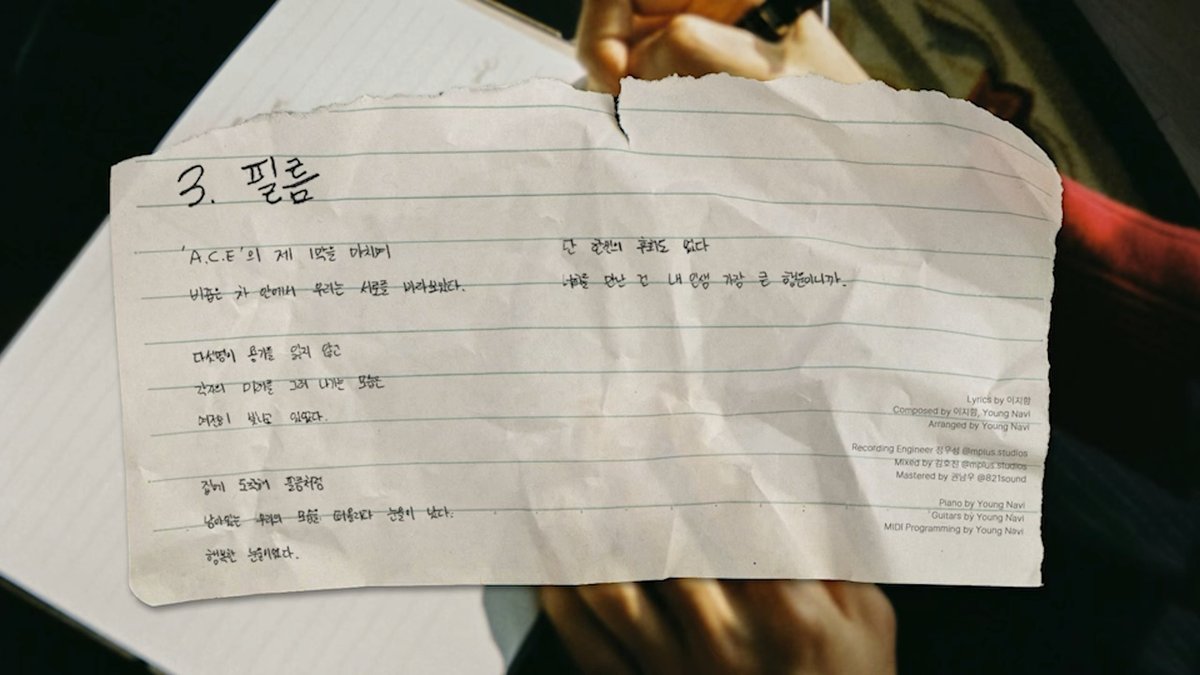 3. 필름
'A.C.E'의 제 1막을 마치며
비좁은 차 안에서 우리는 서로를 바라보았다.
다섯명이 용기를 잃지 않고
각자의 미래를 그려 나가는 모습은
여전히 빛나고 있었다.
집에 도착해 필름처럼
남아있는 우리의 모습을 떠올리다 눈물이 났다.
행복한 눈물이었다.
단 한번의 후회도 없다
너희를 만난 건 내 인생 가장 큰 행운이니까.
Lyrics by 이지함
Composed by 이지함, Young Navi
Arranged by Young Navi
Recording Engineer 정우성 @mplus.studios
Mixed by 김호진 @mplus.studios
Mastered by 권남우 @821sound
Piano by Young Navi
Guitars by Young Navi
MIDI Programming by Young Navi